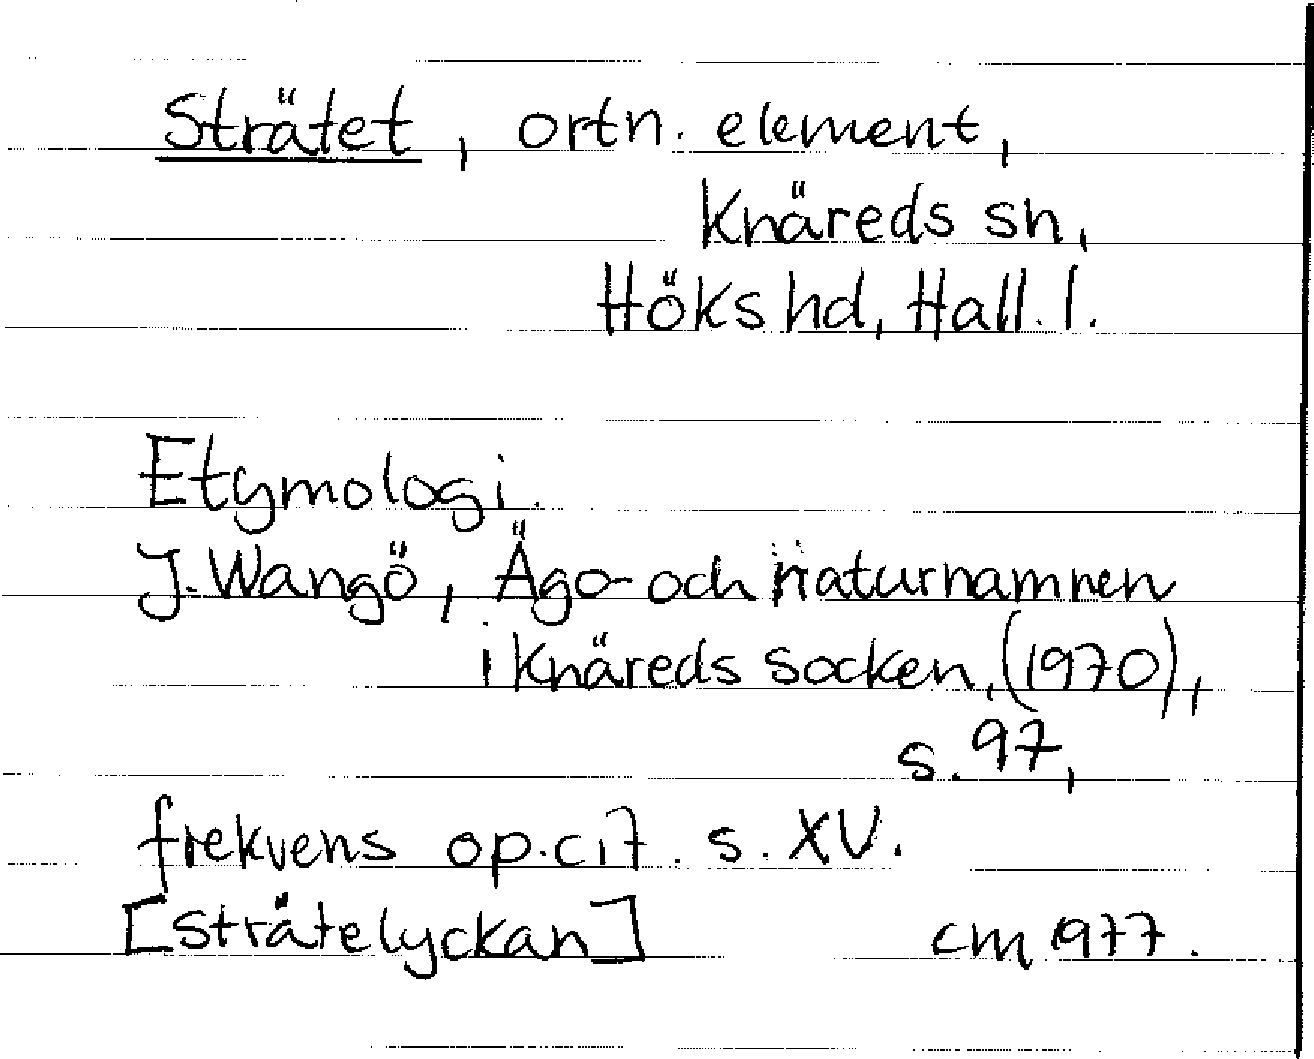 Strätet, ortn. element,
Knäreds sn,
Höks hd, Hall. l.
Etymologi.
J. Wangö, Ägo- och naturnamnen
i Knäreds socken, (1970),
s. 97,
frekvens op.cit. s. XV.
[Strätelyckan] cm 1977.